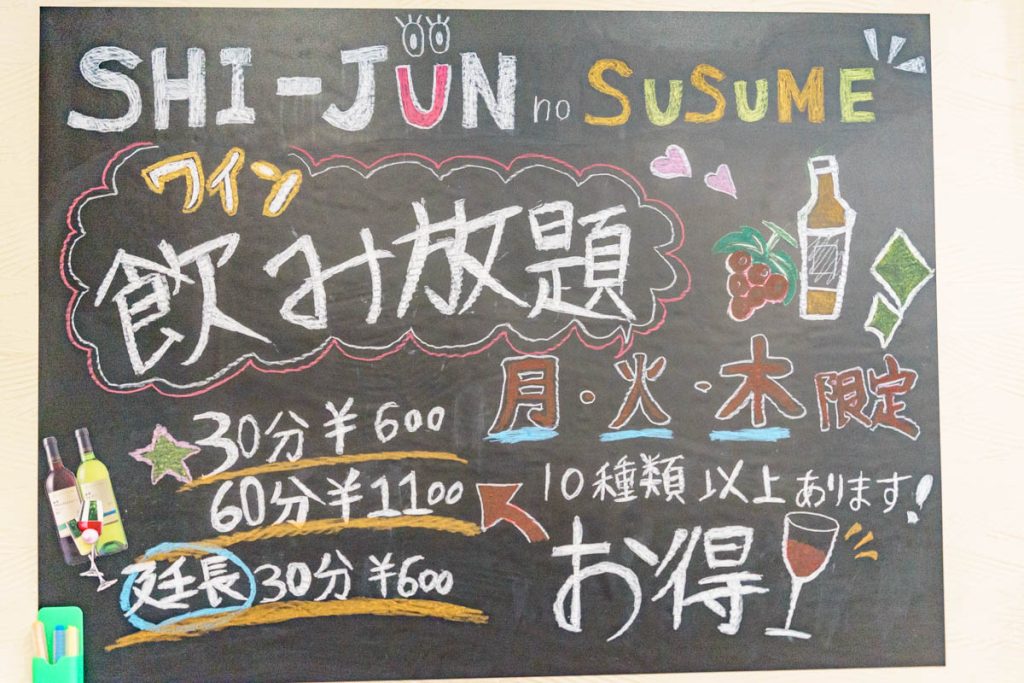 SHI-JUN no SUSUME
ワイン
飲み放題
月・火・木 限定
30分 ¥600
60分 ¥1100
10種類以上あります!
お得
延長 30分 ¥600